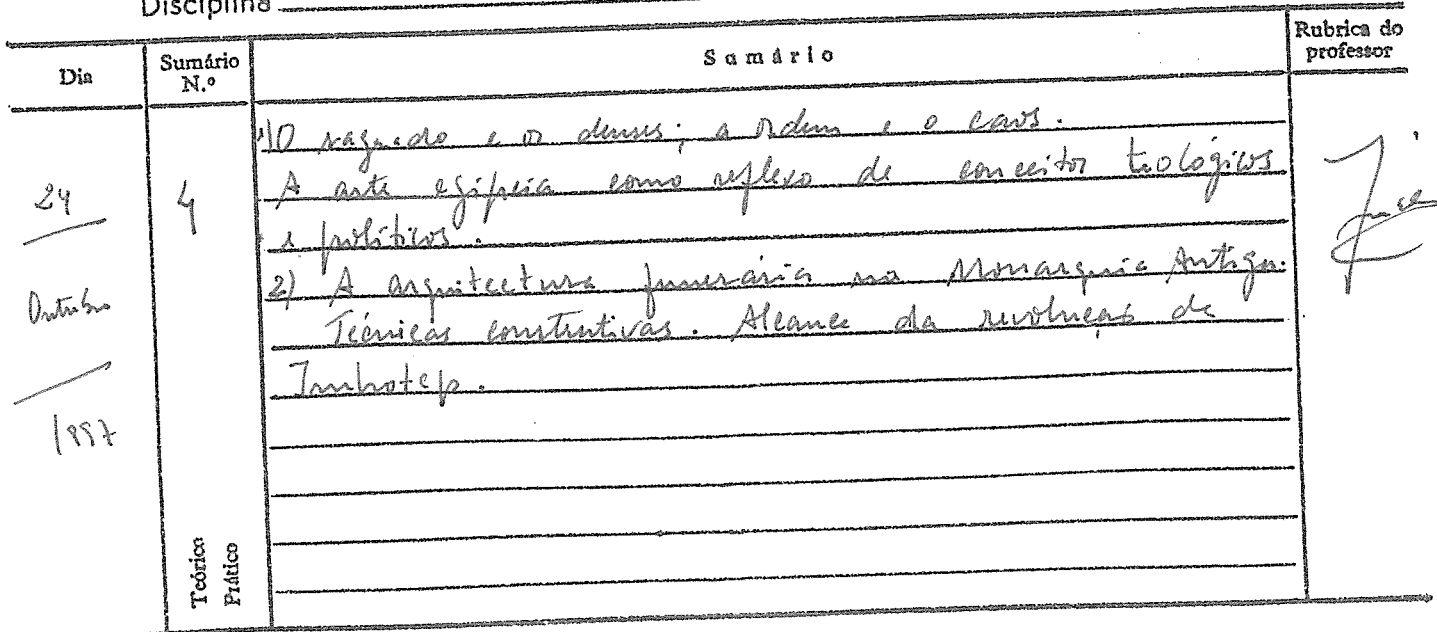 Disciplina
Dia
Sumário N.º
Sumário
Rubrica do professor
24
Outubro
1997
4
1) O sagrado e os deuses; a ordem e o caos.
A arte egípcia como reflexo de conceitos teológicos
e políticos.
2) A arquitectura funerária na Monarquia Antiga.
Técnicas construtivas. Alcance da revolução de
Imhotep.
Teórico
Prático